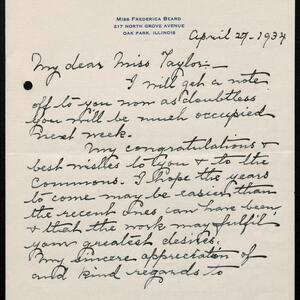 MISS FREDERICA BEARD
217 NORTH GROVE AVENUE
OAK PARK, ILLINOIS
April 29-1934
My dear Miss Taylor:-
I will get a note
off to you now as doubtless
you will be much occupied
next week.
My congratulations &
best wishes to you & to the
Commons. I hope the years
to come may be easier than
the recent ones can have been,
& that the work may fulfil
your greatest desires.
My sincere appreciation of
and kind regards to